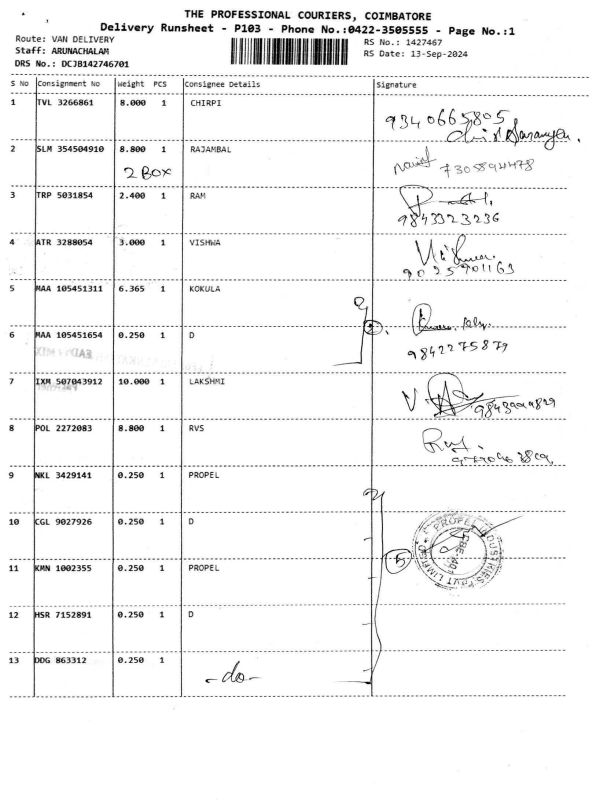 THE PROFESSIONAL COURIERS, COIMBATORE
Delivery Runsheet - P103 - Phone No.:0422-3505555 - Page No.:1
Route: VAN DELIVERY
Staff: ARUNACHALAM
DRS No.: DCJB142746701
RS No.: 1427467
RS Date: 13-Sep-2024
S No Consignment No Weight PCS Consignee Details Signature
1 TVL 3266861 8.000 1 CHIRPI
9340665805
2 SLM 354504910 8.800 1 RAJAMBAL
2 BOX 7305894478
3 TRP 5031854 2.400 1 RAM
9843323236
4 ATR 3288054 3.000 1 VISHWA
9025901163
5 MAA 105451311 6.365 1 KOKULA
2
6 MAA 105451654 0.250 1 D
9842275879
7 IXM 507043912 10.000 1 LAKSHMI
8 POL 2272083 8.800 1 RVS
9 NKL 3429141 0.250 1 PROPEL
10 CGL 9027926 0.250 1 D
PROPEL INDUSTRIES PVT LIMITED
11 KMN 1002355 0.250 1 PROPEL
5
12 HSR 7152891 0.250 1 D
13 DDG 863312 0.250 1
-do-